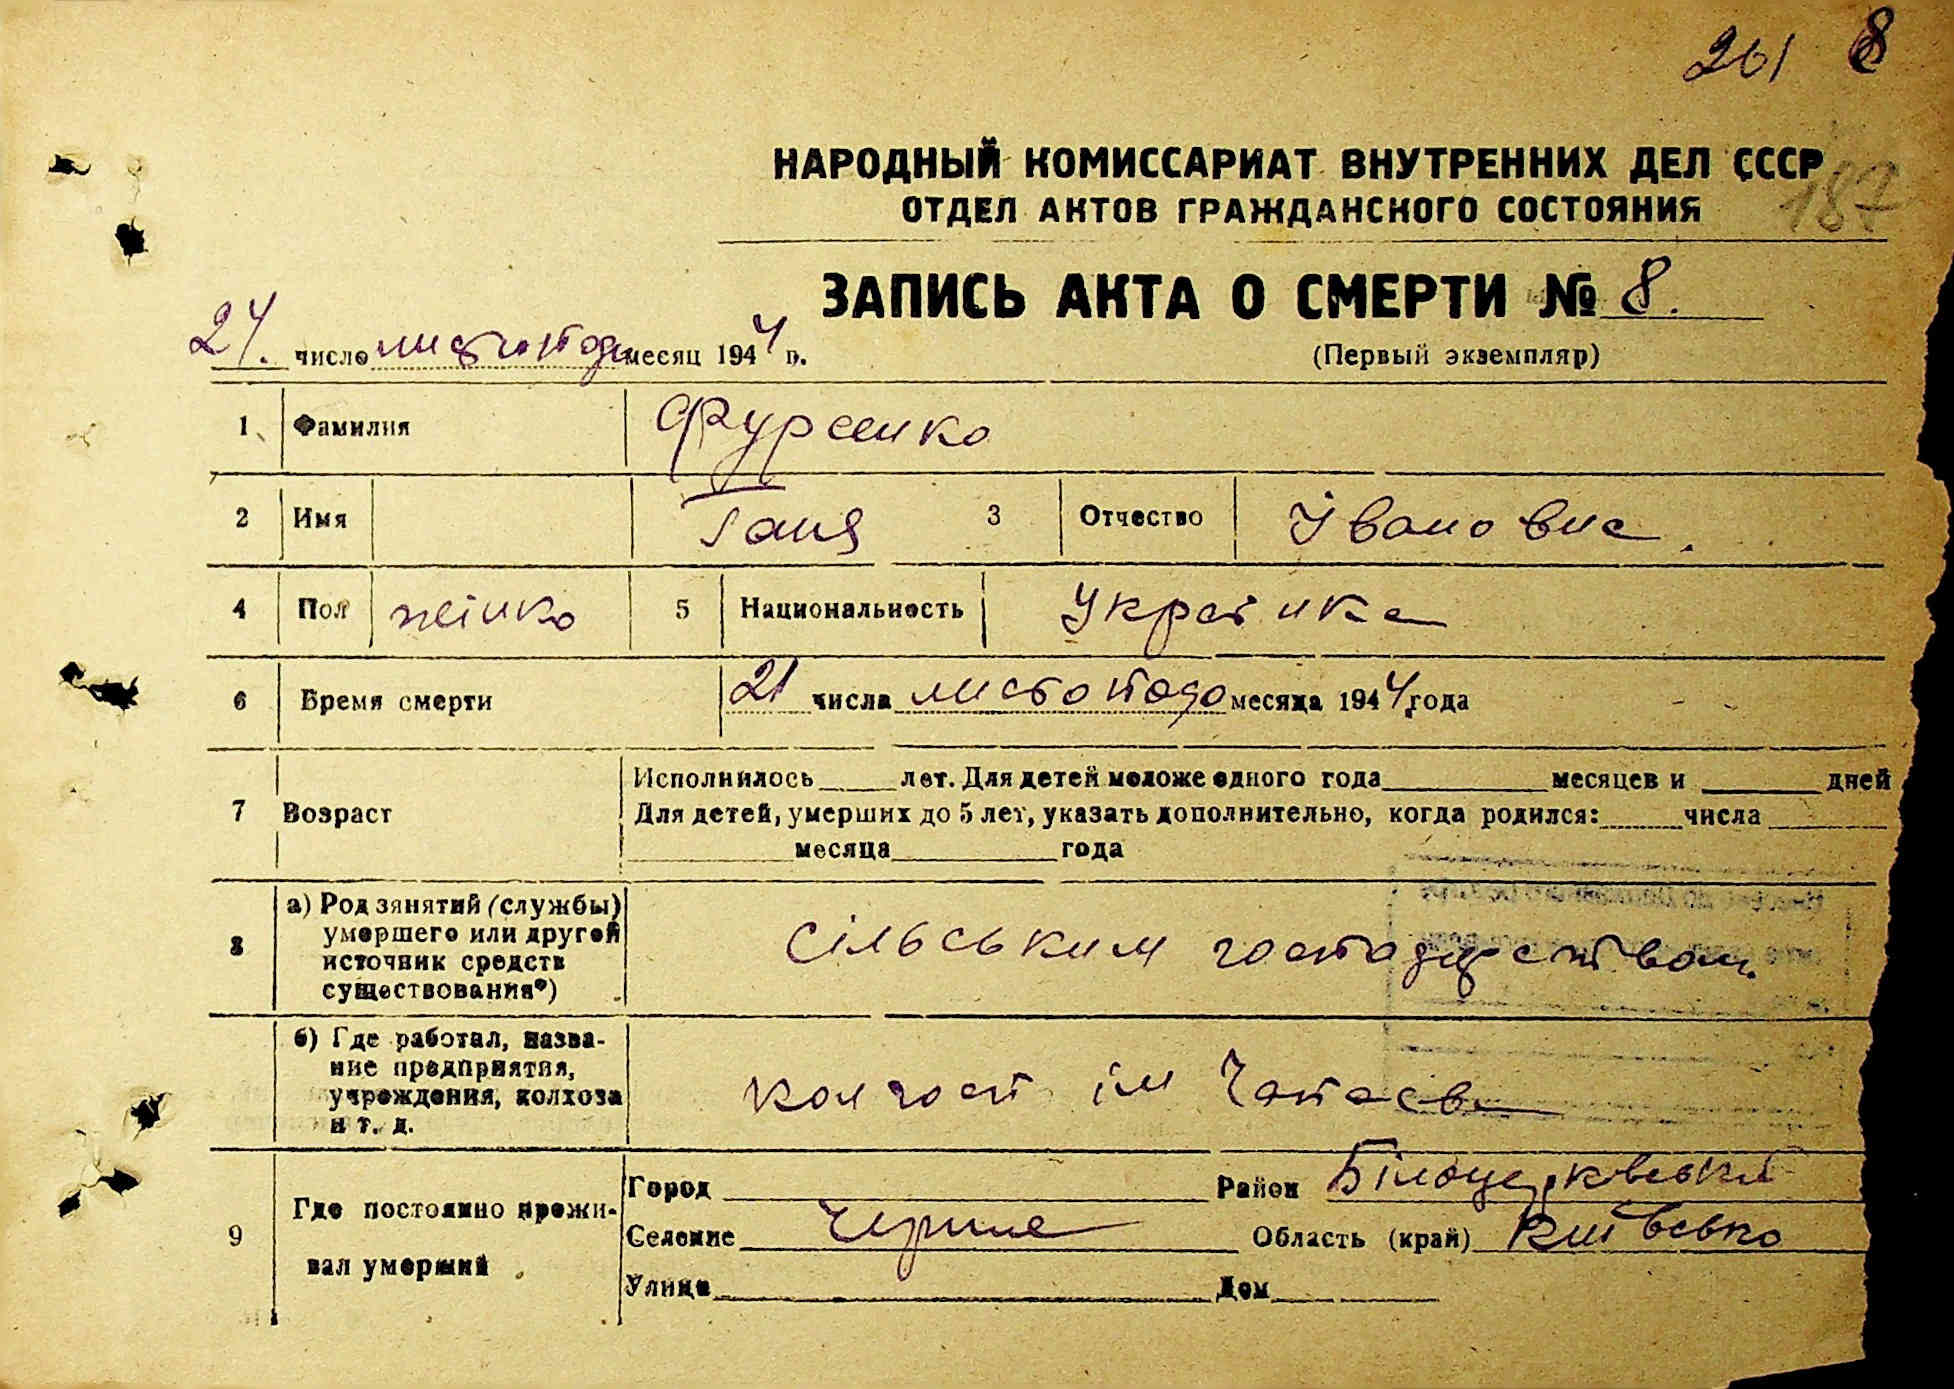 261 8
НАРОДНЫЙ КОМИССАРИАТ ВНУТРЕННИХ ДЕЛ СССР
187
ОТДЕЛ АКТОВ ГРАЖДАНСКОГО СОСТОЯНИЯ
ЗАПИСЬ АКТА О СМЕРТИ № 8.
24. число листопада месяц 1944 г.
(Первый экземпляр)
1 Фамилия Фурсенко
2 Имя Ганя 3 Отчество Івановна.
4 Пол жінка 5 Национальность Українка
6 Время смерти 21 числа листопада месяца 1944 года
7 Возраст Исполнилось лет. Для детей моложе одного года месяцев и дней
Для детей, умерших до 5 лет, указать дополнительно, когда родился: числа
месяца года
8 а) Род занятий (службы) умершего или другой источник средств существования*) сільським господарством.
б) Где работал, название предприятия, учреждения, колхоза и т. д. колгосп ім Чапаєва
9 Где постоянно проживал умерший
Город Район Білоцерківський
Селение Область (край) Київська
Улица Дом